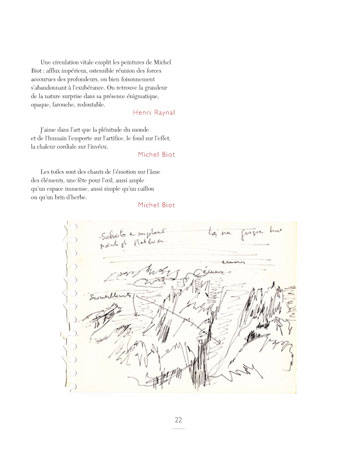 Une circulation vitale emplit les peintures de Michel
Biot : afflux impérieux, ostensible réunion des forces
accourues des profondeurs, ou bien foisonnement
s'abandonnant à l'exubérance. On retrouve la grandeur
de la nature surprise dans sa présence énigmatique,
opaque, farouche, redoutable.
Henri Raynal
J'aime dans l'art que la plénitude du monde
et de l'humain l'emporte sur l'artifice, le fond sur l'effet,
la chaleur cordiale sur l'invécu.
Michel Biot
Les toiles sont des chants de l'émotion sur l'âme
des éléments, une fête pour l'œil, aussi ample
qu'un espace immense, aussi simple qu'un caillou
ou qu'un brin d'herbe.
Michel Biot
22